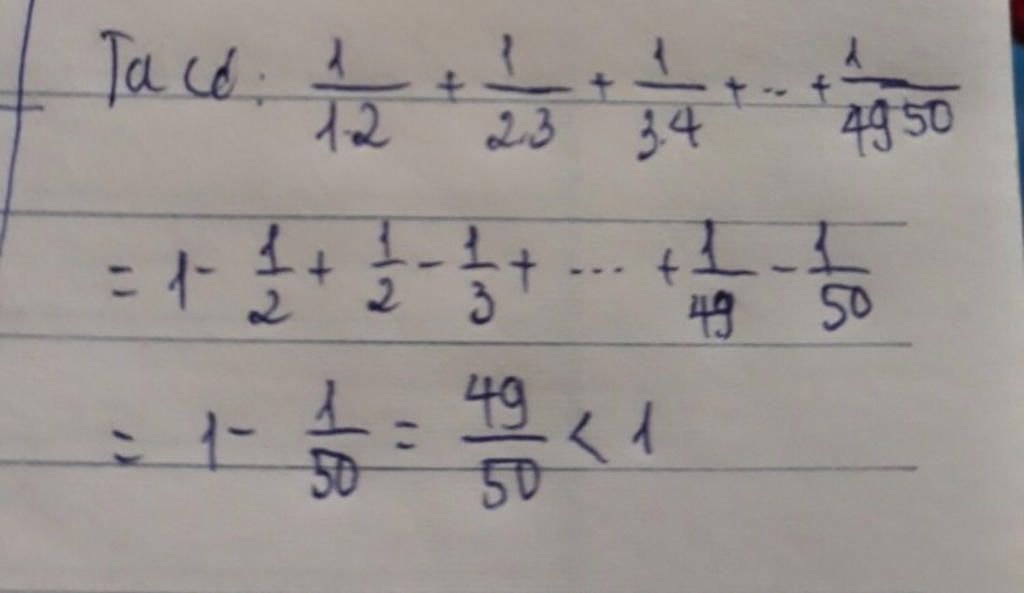 Ta có: 1/1.2 + 1/2.3 + 1/3.4 + ... + 1/49.50
= 1 - 1/2 + 1/2 - 1/3 + ... + 1/49 - 1/50
= 1 - 1/50 = 49/50 < 1